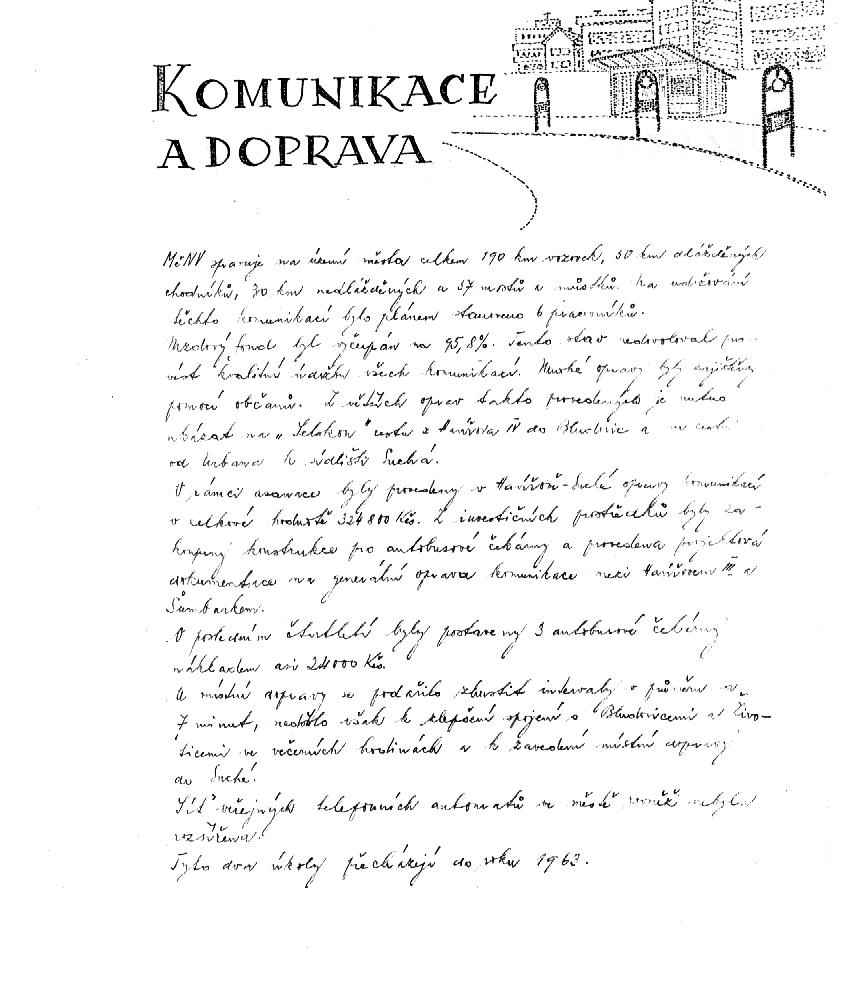 KOMUNIKACE
A DOPRAVA
MěNV spravuje na území města celkem 190 km vozovek, 50 km dlážděných
chodníků, 30 km nedlážděných a 57 mostů a můstků. Na udržování
těchto komunikací bylo plánem stanoveno 6 pracovníků.
Mzdový fond byl vyčerpán na 95,8%. Tento stav nedovoloval pro-
vést kvalitní údržbu všech komunikací. Mnohé opravy byly zajištěny
pomocí občanů. Z větších oprav takto provedených je nutno
ukázat na „Selskou" cestu z Havířova IV do Bludovic a na cestu
od Urbana k sídlišti Suchá.
V rámci asanace byly provedeny v Havířově-Suché opravy komunikací
v celkové hodnotě 324 800 Kčs. Z investičních prostředků byly za-
koupeny konstrukce pro autobusové čekárny a provedena projektová
dokumentace na generální opravu komunikace mezi Havířovem III a
Šumbarkem.
V posledním čtvrtletí byly postaveny 3 autobusové čekárny
nákladem asi 24 000 Kčs.
U místní dopravy se podařilo zhustit intervaly v průměru na
7 minut, nedošlo však k zlepšení spojení s Bludovicemi a Živo-
ticemi ve večerních hodinách a k zavedení místní dopravy
do Suché.
Síť veřejných telefonních automatů ve městě rovněž nebyla
rozšířena.
Tyto dva úkoly přecházejí do roku 1963.